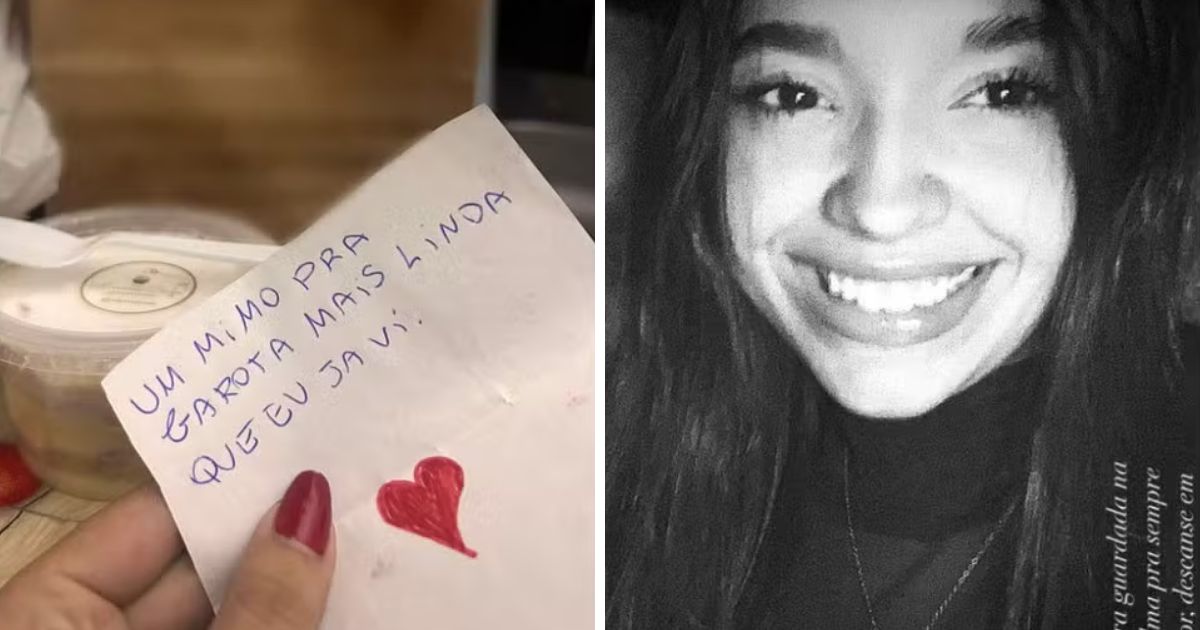 UM MIMO PRA
GAROTA MAIS LINDA
QUE EU JA VI.
guardada na
pra sempre
descanse em